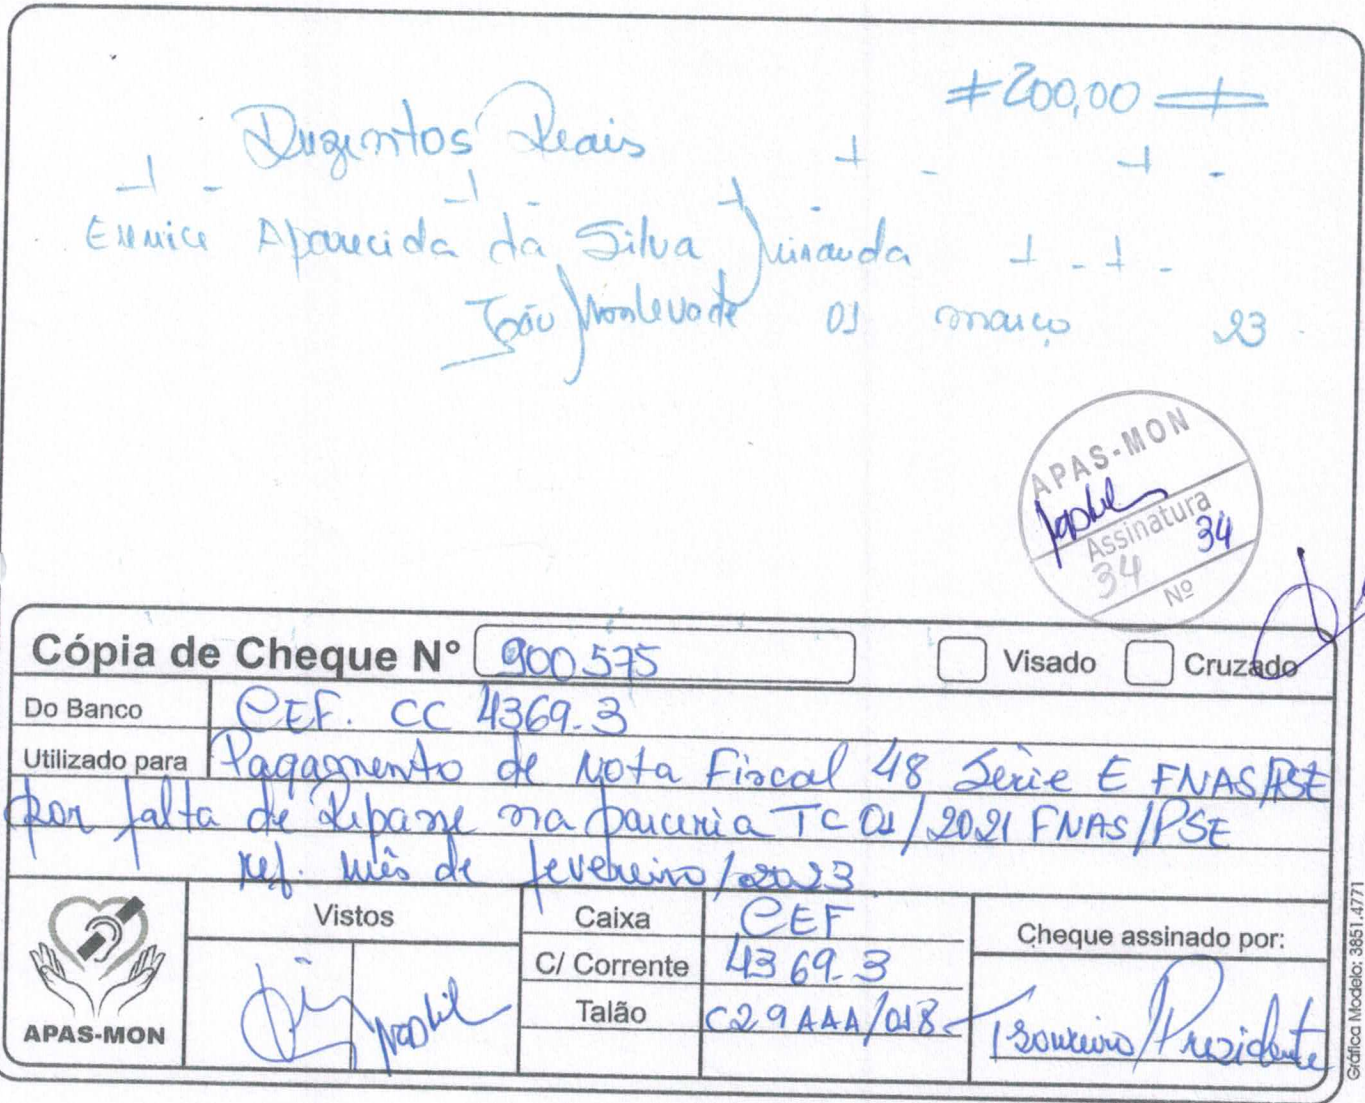 # 200,00
Duzentos Reais
Eunice Aparecida da Silva Miranda
João Monlevade 01 março 23
APAS-MON
Assinatura
34
34
Nº
Cópia de Cheque N° 900.575
Visado Cruzado
Do Banco CEF. CC 4369.3
Utilizado para Pagamento de Nota Fiscal 48 Série E FNAS/PSE
por falta de Repasse na parceria TC 01/2021 FNAS/PSE
ref. mês de fevereiro/2023
Vistos
Caixa CEF
C/ Corrente 4369.3
Talão C29AAA/018
Cheque assinado por:
Tesoureiro/Presidente
APAS-MON
Gráfica Modelo: 3851.4771